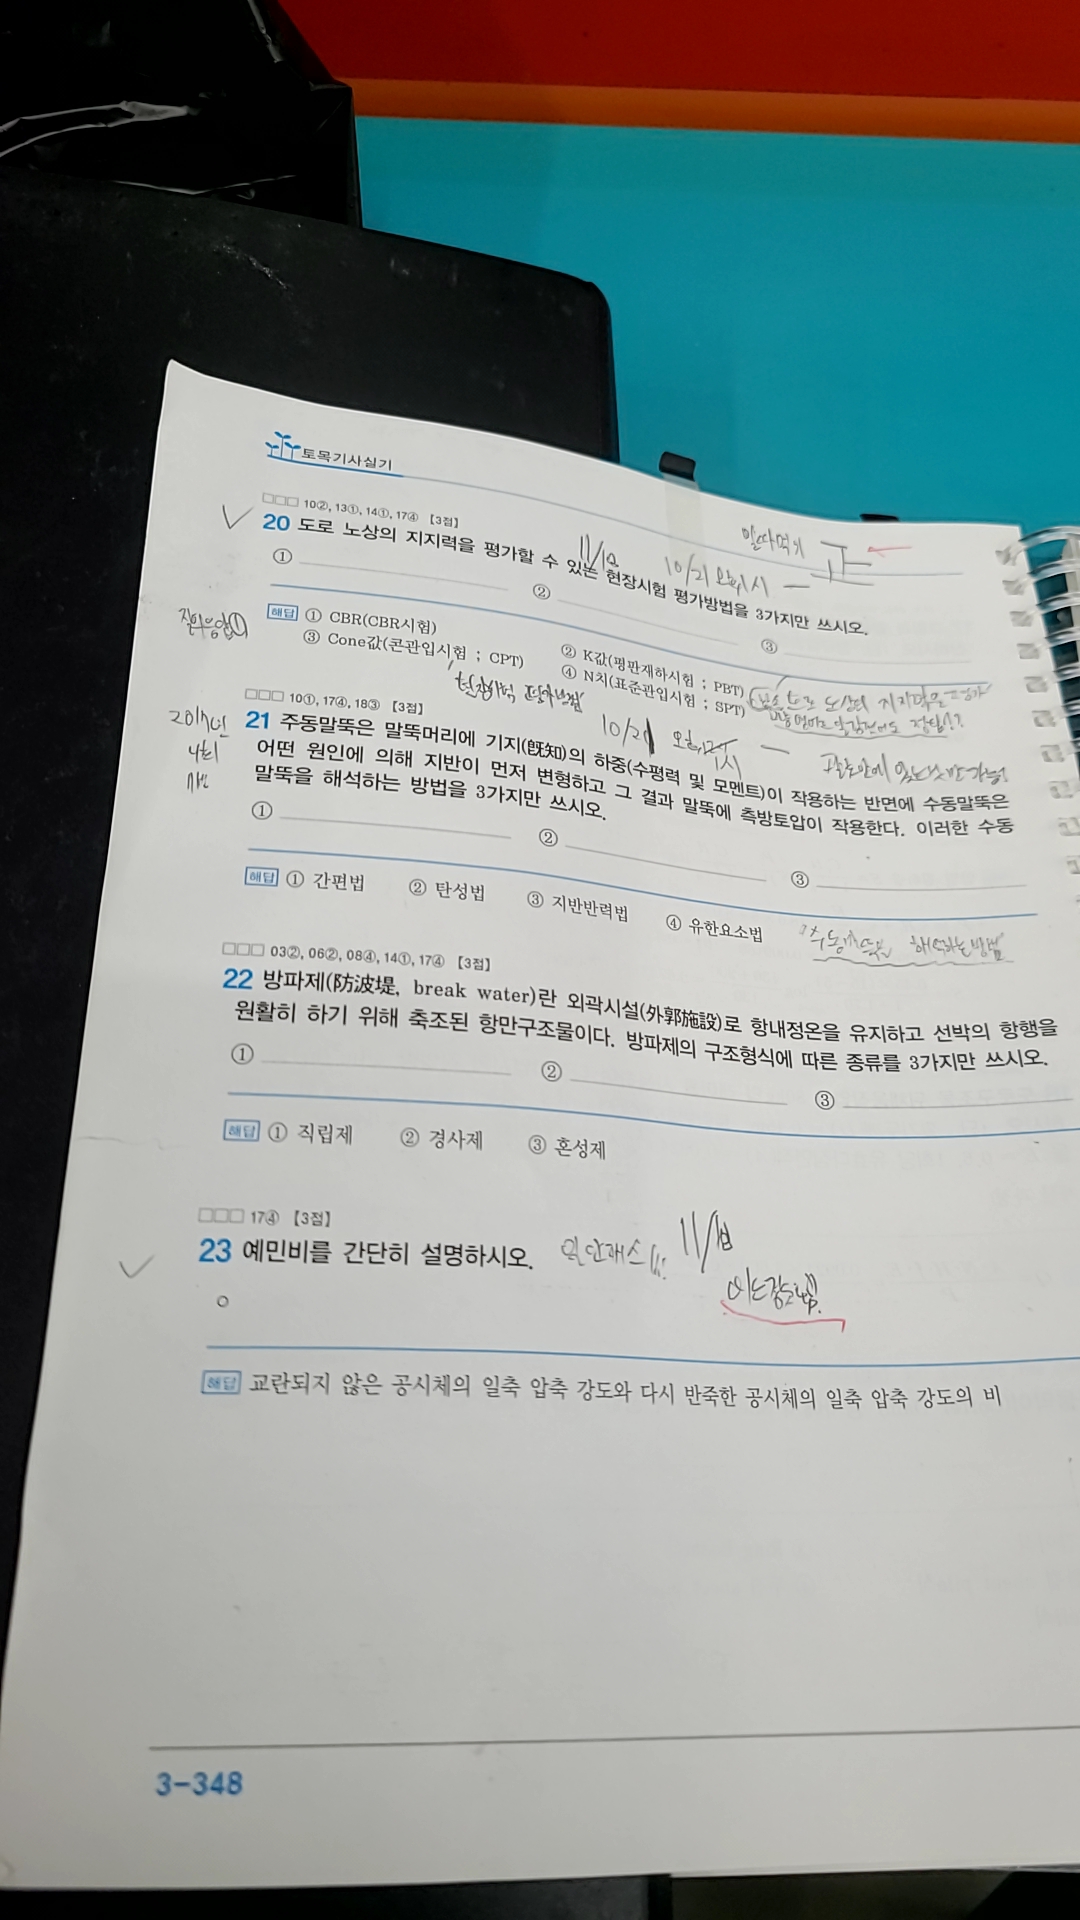 토목기사실기
□□□ 10②, 13①, 14①, 17④ 【3점】
20 도로 노상의 지지력을 평가할 수 있는 현장시험 평가방법을 3가지만 쓰시오.
11/10
10/21
① ② ③
해답 ① CBR(CBR시험) ② K값(평판재하시험 ; PBT)
③ Cone값(콘관입시험 ; CPT) ④ N치(표준관입시험 ; SPT)
질의응답①
□□□ 10①, 17④, 18③ 【3점】
10/21
2017년
4회
21 주동말뚝은 말뚝머리에 기지(旣知)의 하중(수평력 및 모멘트)이 작용하는 반면에 수동말뚝은
어떤 원인에 의해 지반이 먼저 변형하고 그 결과 말뚝에 측방토압이 작용한다. 이러한 수동
말뚝을 해석하는 방법을 3가지만 쓰시오.
① ② ③
해답 ① 간편법 ② 탄성법 ③ 지반반력법 ④ 유한요소법
수동말뚝을 해석하는 방법
□□□ 03②, 06②, 08④, 14①, 17④ 【3점】
22 방파제(防波堤, break water)란 외곽시설(外郭施設)로 항내정온을 유지하고 선박의 항행을
원활히 하기 위해 축조된 항만구조물이다. 방파제의 구조형식에 따른 종류를 3가지만 쓰시오.
① ② ③
해답 ① 직립제 ② 경사제 ③ 혼성제
□□□ 17④ 【3점】
23 예민비를 간단히 설명하시오.
11/10
해답 교란되지 않은 공시체의 일축 압축 강도와 다시 반죽한 공시체의 일축 압축 강도의 비
3-348